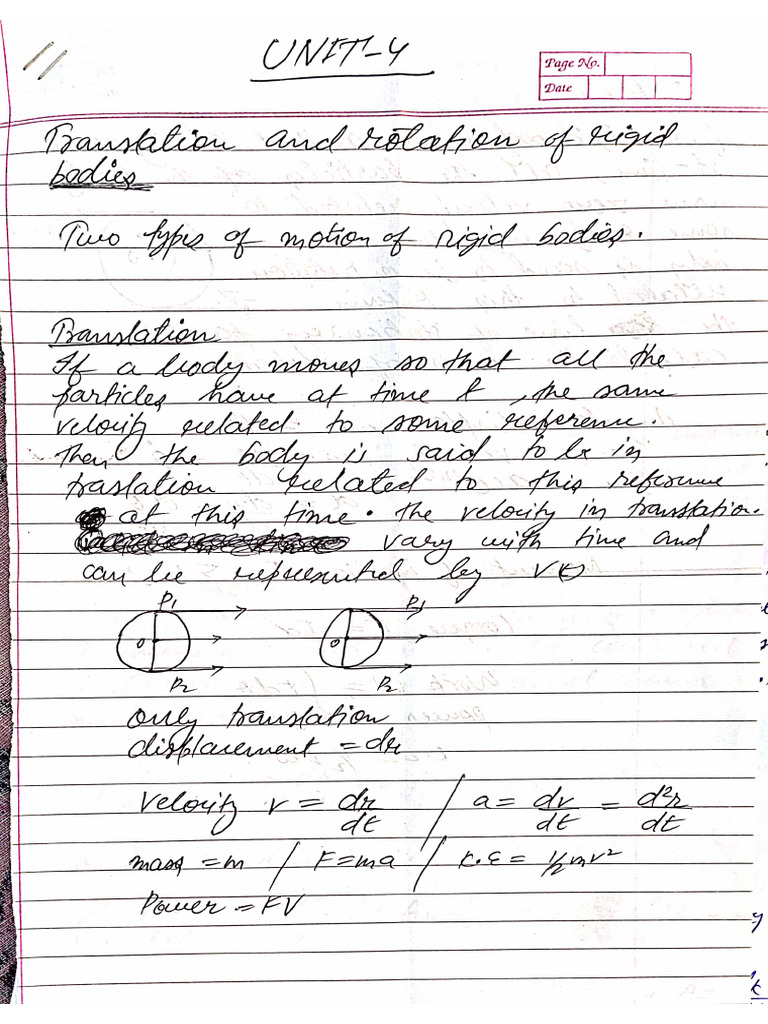 UNIT-4
Page No.
Date
Translation and rotation of rigid
bodies
Two types of motion of rigid bodies.
Translation
If a body moves so that all the
particles have at time t, the same
velocity related to some reference.
Then the body is said to be in
traslation related to this reference
at this time. the velocity in translation.
vary with time and
can be represented by V(t)
P1 P1
O O
P2 P2
only translation
displacement = dr
Velocity v = dr/dt / a = dv/dt = d²r/dt
mass = m / F = ma / K.E = 1/2 mv²
Power = FV